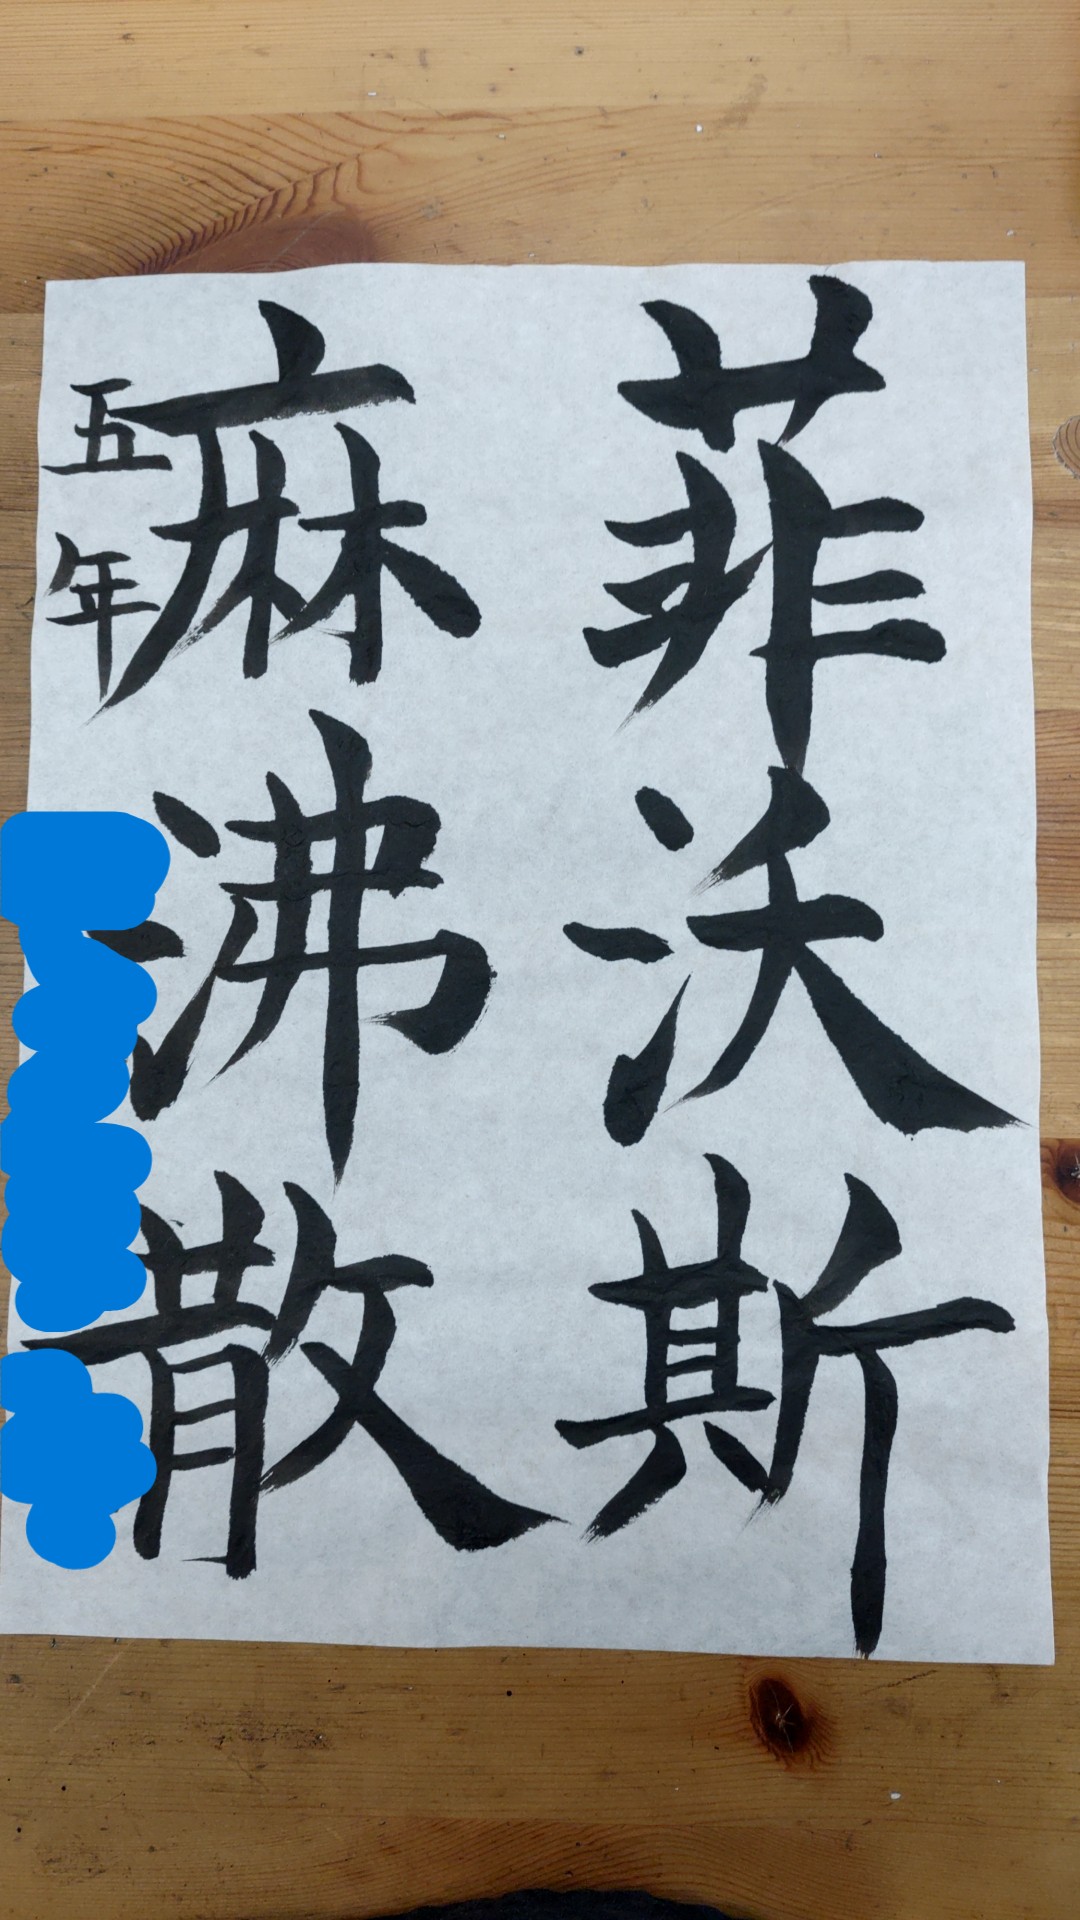 菲沃斯
麻沸散
五年